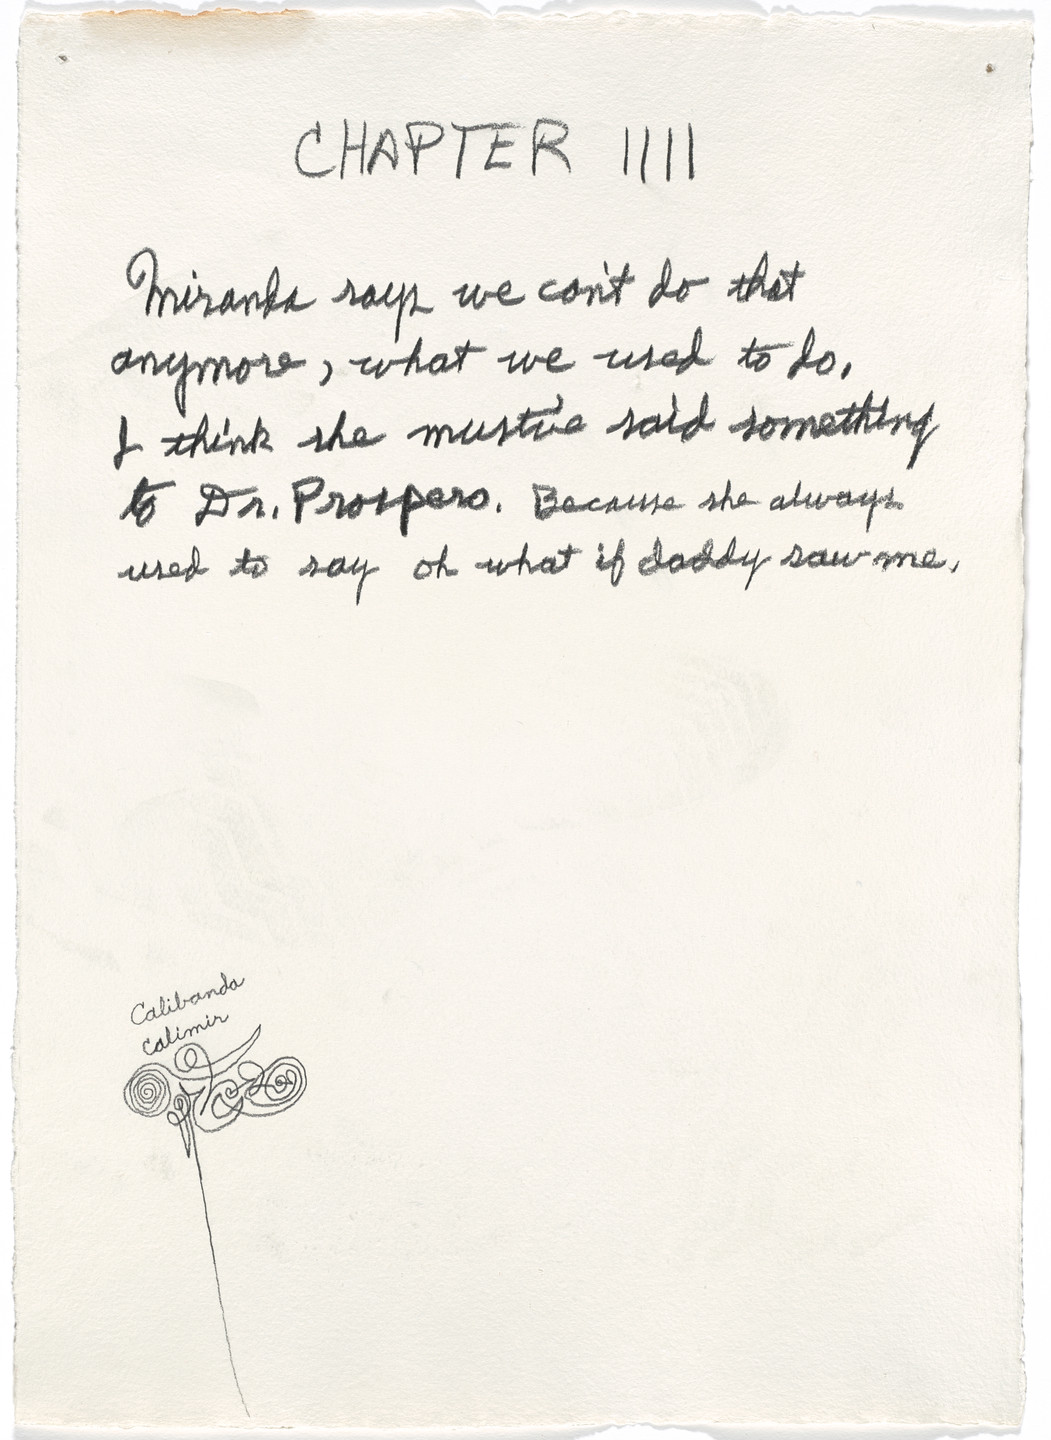 CHAPTER IIII
Miranda says we can't do that
anymore, what we used to do.
I think she must've said something
to Dr. Prospero. Because she always
used to say oh what if daddy saw me.
Calibanda
Calimir